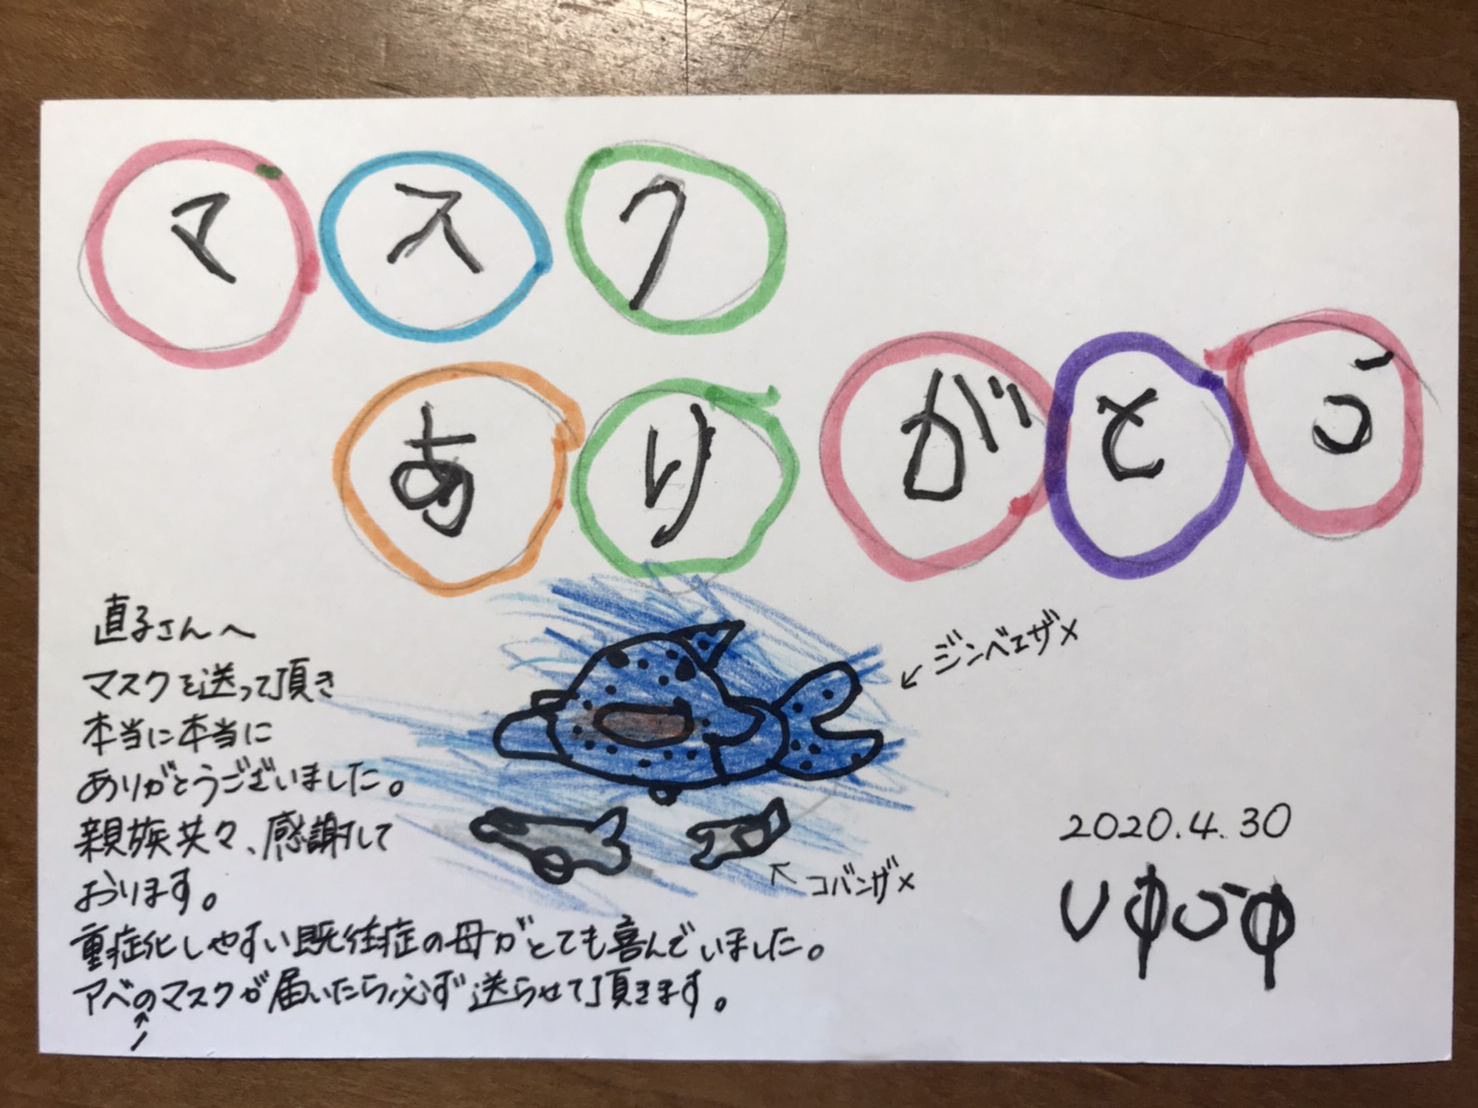 マスク
ありがとう
直子さんへ
マスクを送って頂き
本当に本当に
ありがとうございました。
親族共々、感謝して
おります。
重症化しやすい既往症の母がとても喜んでいました。
アベのマスクが届いたら必ず送らせて頂きます。
↑
ノ
ジンベエザメ
コバンザメ
2020.4.30